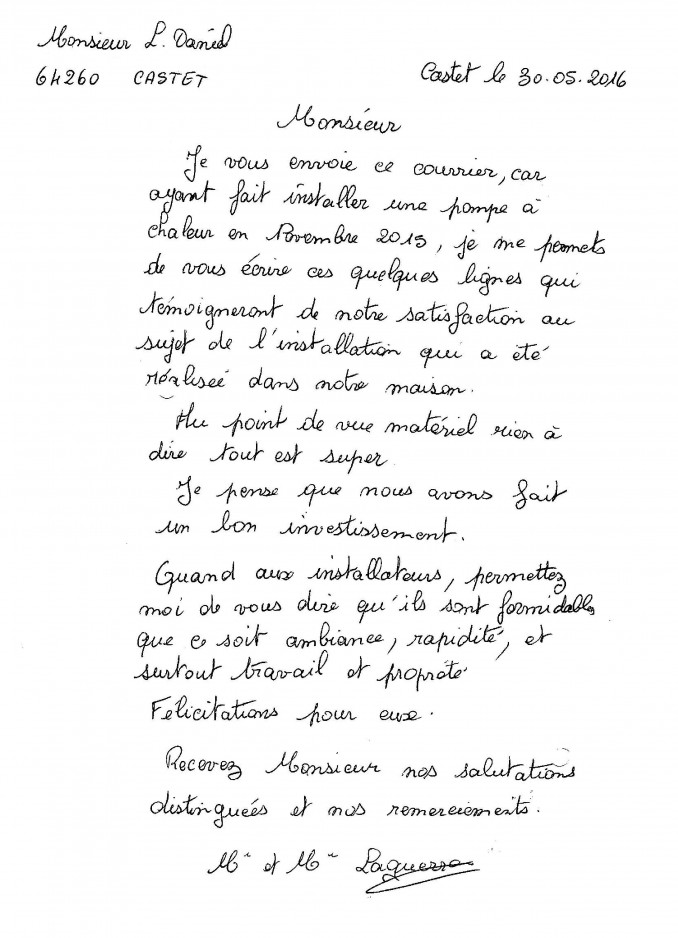 Monsieur L. Daniel
64260 CASTET
Castet le 30.05.2016
Monsieur
Je vous envoie ce courrier, car
ayant fait installer une pompe à
chaleur en Novembre 2015, je me permets
de vous écrire ces quelques lignes qui
témoigneront de notre satisfaction au
sujet de l'installation qui a été
réaliseé dans notre maison.
Au point de vue matériel rien à
dire tout est super
Je pense que nous avons fait
un bon investissement.
Quand aux installateurs, permettez
moi de vous dire qu'ils sont formidables
que ce soit ambiance, rapidité, et
surtout travail et propreté
Félicitations pour eux.
Recevez Monsieur nos salutations
distinguées et nos remerciements.
Mr et Mme Laguerre